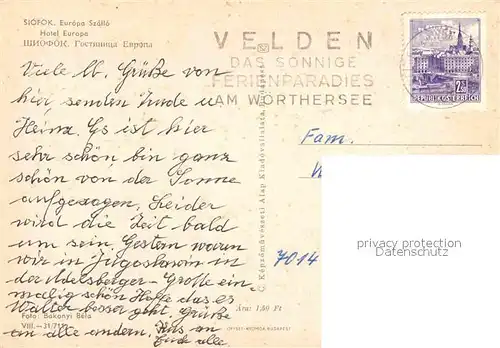 SIÓFOK. Európa Szálló
Hotel Europa
ШИОФОК. Гостиница Европа
VELDEN
DAS SONNIGE
FERIENPARADIES
AM WÖRTHERSEE
2.50
REPUBLIK ÖSTERREICH
Viele lb. Grüße von
hier senden Trude u
Heinz. Es ist hier
sehr schön bin ganz
schön von der Sonne
aufgesogen. Leider
wird die Zeit bald
um sein. Gestern waren
wir in Jugoslawien in
der Adelsberger-Grotte ein
malig schön Hoffe das es
Walter besser geht. Grüße
an alle andern. Kuss an
Euch alle
Fam.
W
7014
privacy protection
Datenschutz
C. Képzőművészeti Alap Kiadóvállalata, Budapest
Ára: 1,50 Ft
Foto: Bakonyi Béla
VIII.—31/711
OFFSET-NYOMDA, BUDAPEST